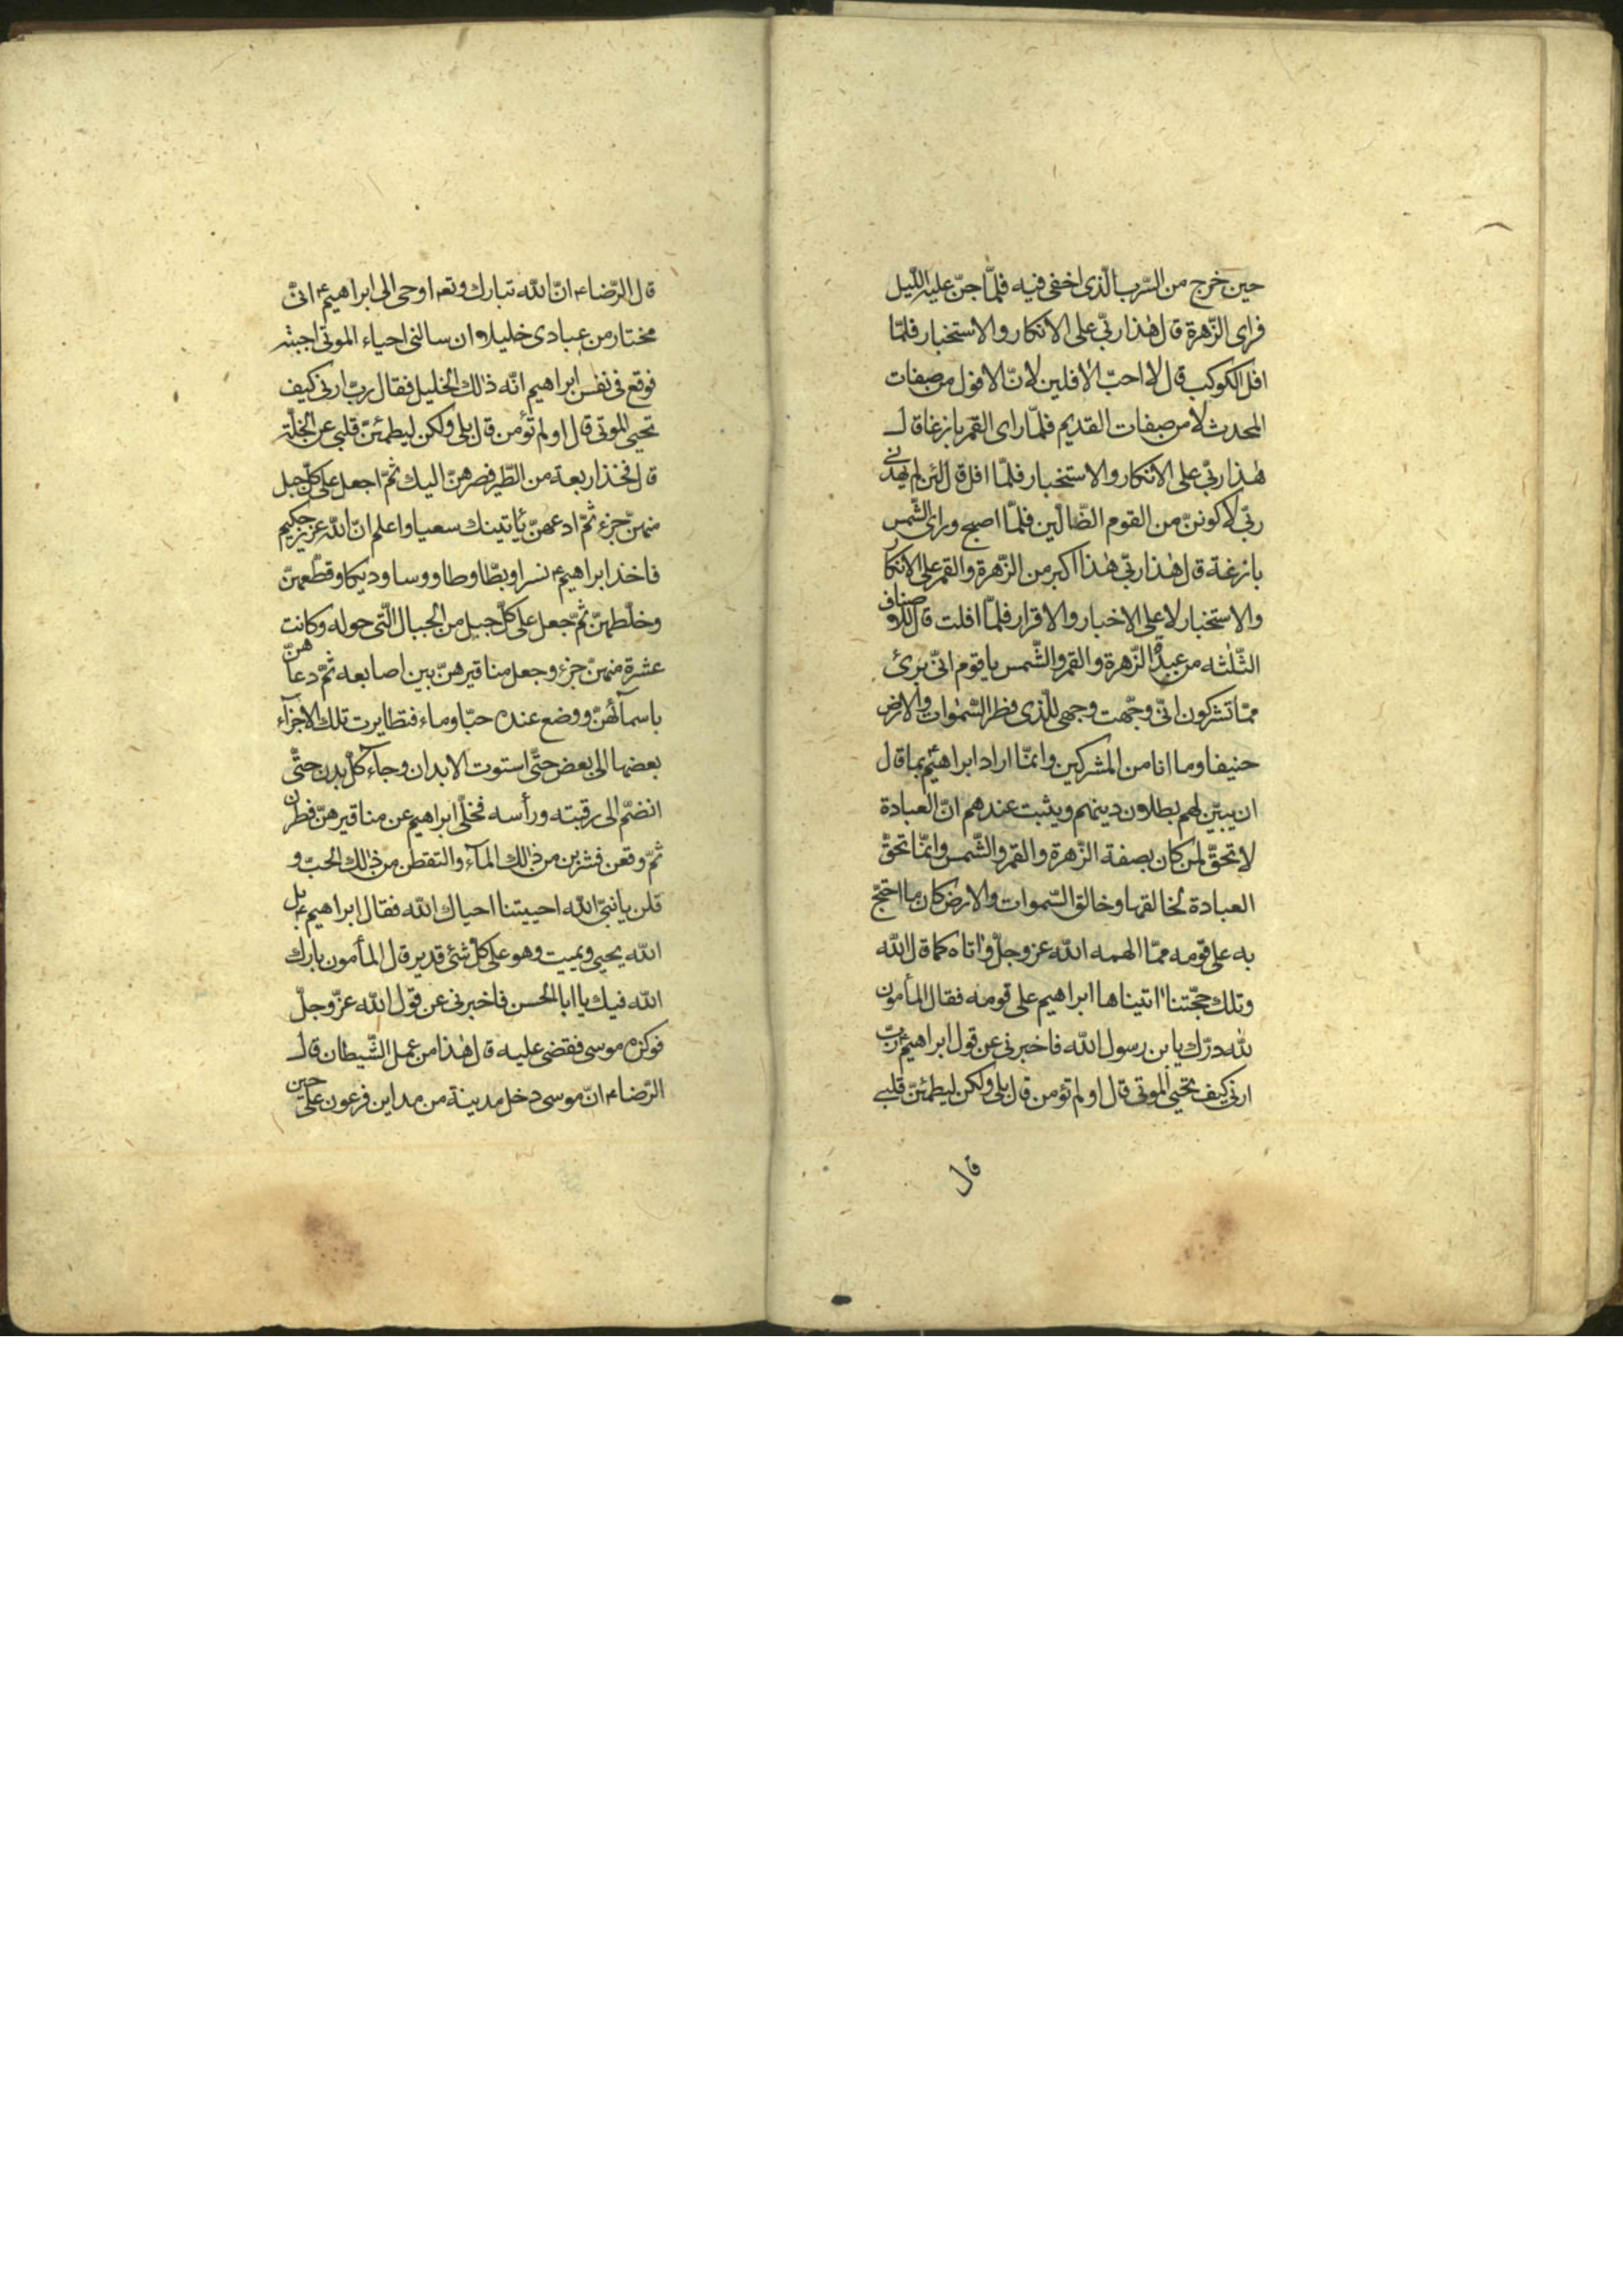 حين خرج من السّرب الّذى اخفى فيه فلمّا جنّ عليه اللّيل
فراى الزّهرة قال هٰذا ربّى على الانكار والاستخبار فلمّا
افل الكوكب قال لا احبّ الافلين لانّ الافول من صفات
المحدث لا من صفات القديم فلمّا راى القمر بازغا قال
هٰذا ربّى على الانكار والاستخبار فلمّا افل قال لئن لم يهدنى
ربّى لاكوننّ من القوم الضّالّين فلمّا اصبح وراى الشّمس
بازغة قال هٰذا ربّى هٰذا اكبر من الزّهرة والقمر على الانكار
والاستخبار لا على الاخبار والاقرار فلمّا افلت قال للاصناف
الثّلٰثه من عبدة الزّهرة والقمر والشّمس يا قوم انّى برئ
ممّا تشركون انّى وجّهت وجهى للّذى فطر السّمٰوات والارض
حنيفا وما انا من المشركين وانمّا اراد ابراهيم بما قال
ان يبيّن لهم بطلان دينهم ويثبت عندهم انّ العبادة
لا تحقّ لمن كان بصفة الزّهرة والقمر والشّمس وانمّا تحقّ
العبادة لخالقها وخالق السّموات والارض كان ما احتجّ
به على قومه ممّا الهمه الله عز وجلّ واتاه كما قال الله
وتلك حجّتنا اتيناها ابراهيم على قومه فقال المأمون
لله درّك يا بن رسول الله فاخبرنى عن قول ابراهيم ربّ
ارنى كيف تحيى الموتى قال اولم تؤمن قال بلى ولكن ليطمئنّ قلبى
قال
قال الرّضاء انّ الله تبارك وتعه اوحى الى ابراهيم ع انّى
مختار من عبادى خليلا وان سالنى احياء الموتى اجبته
فوقع فى نفس ابراهيم انّه ذٰلك الخليل فقال ربّ ارنى كيف
تحيى الموتى قال اولم تؤمن قال بلى ولكن ليطمئنّ قلبى عن الخلّة
قال فخذ اربعة من الطّير فصرهنّ اليك ثمّ اجعل على كلّ جبل
منهنّ جزء ثمّ ادعهنّ يأتينك سعيا واعلم انّ الله عزيز حكيم
فاخذ ابراهيم ع نسرا وبطّا وطاووسا وديكا وقطّعهنّ
وخلّطهنّ ثمّ جعل على كلّ جبل من الجبال الّتى حوله وكانت
عشرة منهنّ جزء وجعل مناقيرهنّ بين اصابعه ثمّ دعاهنّ
باسمائهنّ ووضع عنده حبّا وماء فتطايرت تلك الاجزآء
بعضها الى بعض حتّى استوت الابدان وجآء كلّ بدن حتّى
انضمّ الى رقبته ورأسه فخلّى ابراهيم عن مناقيرهنّ فطرن
ثمّ وقعن فشربن من ذٰلك المآء والتقطن من ذٰلك الحبّ و
قلن يا نبىّ الله احييتنا احياك الله فقال ابراهيم ع بل
الله يحيى ويميت وهو على كلّ شئ قدير قال المأمون بارك
الله فيك يا ابا الحسن فاخبرنى عن قول الله عزّ وجلّ
فوكزه موسى فقضى عليه قال هٰذا من عمل الشّيطان قال
الرّضاء انّ موسى دخل مدينة من مداين فرعون على حين